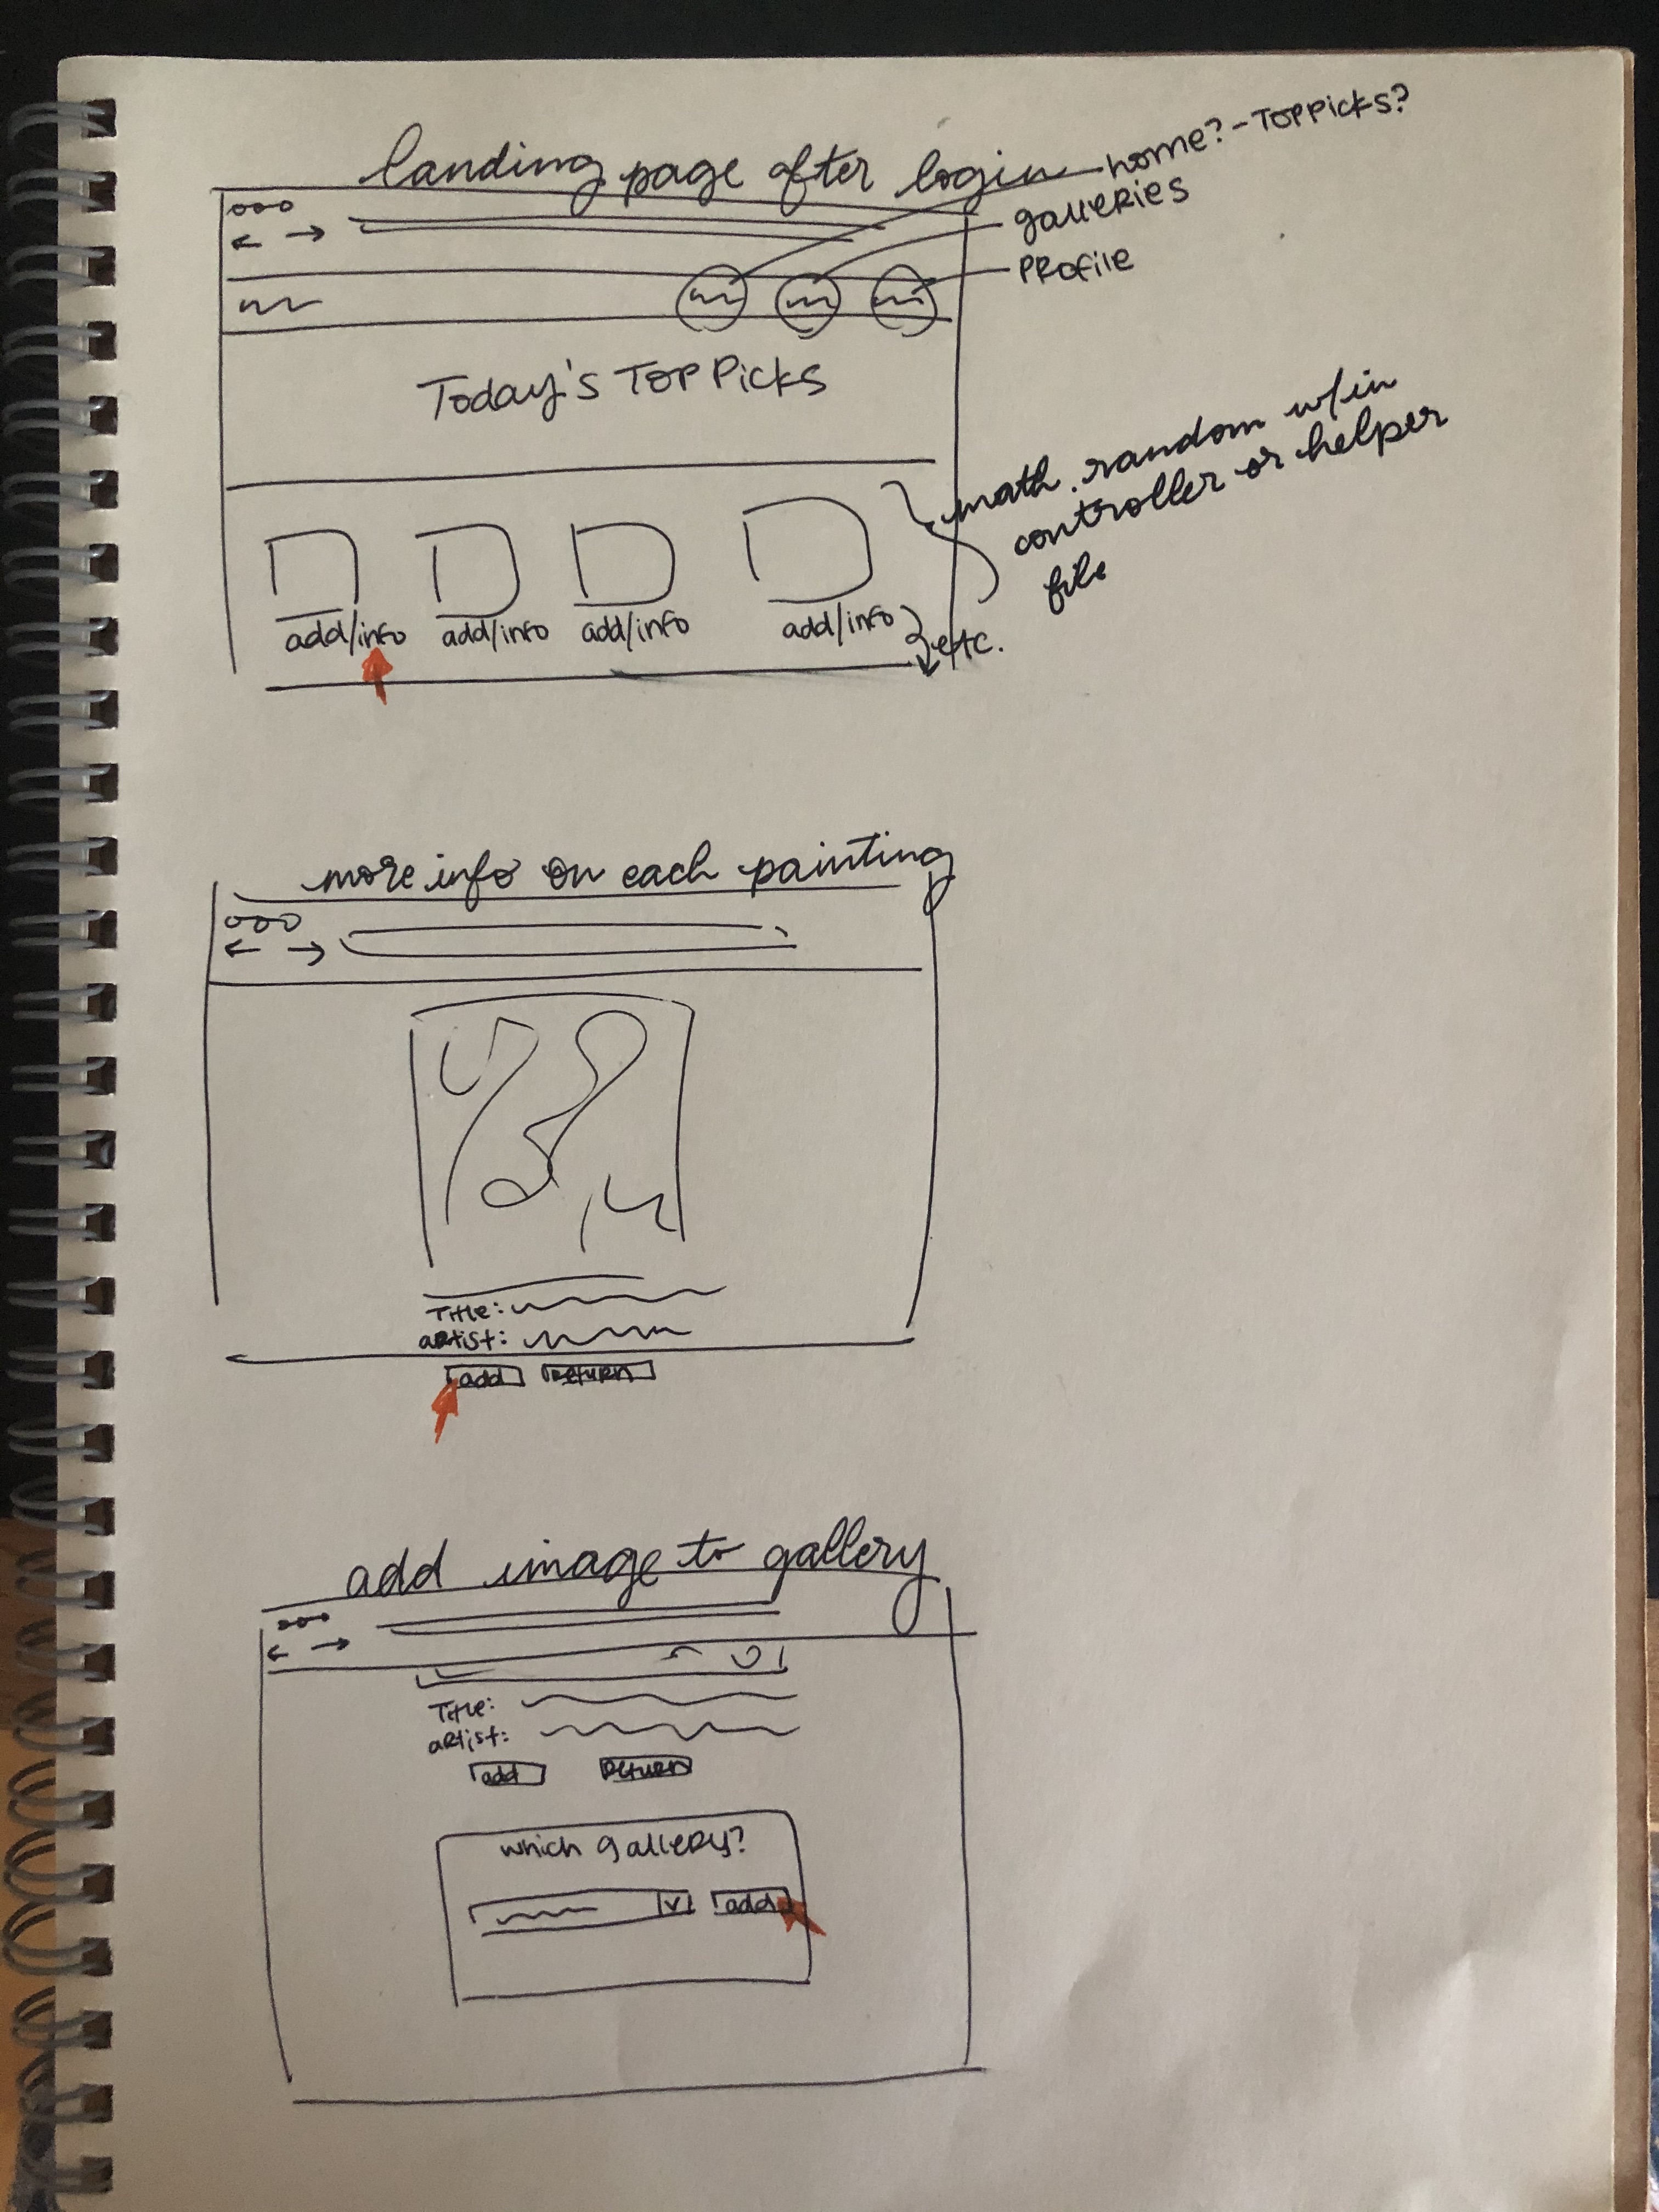 landing page after login
home? - TOP Picks?
galleries
Profile
Today's TOP Picks
math.random w/in
controller or helper
file
add/info add/info add/info add/info
etc.
more info on each painting
Title:
artist:
add return
add image to gallery
Title:
artist:
add return
which gallery?
add